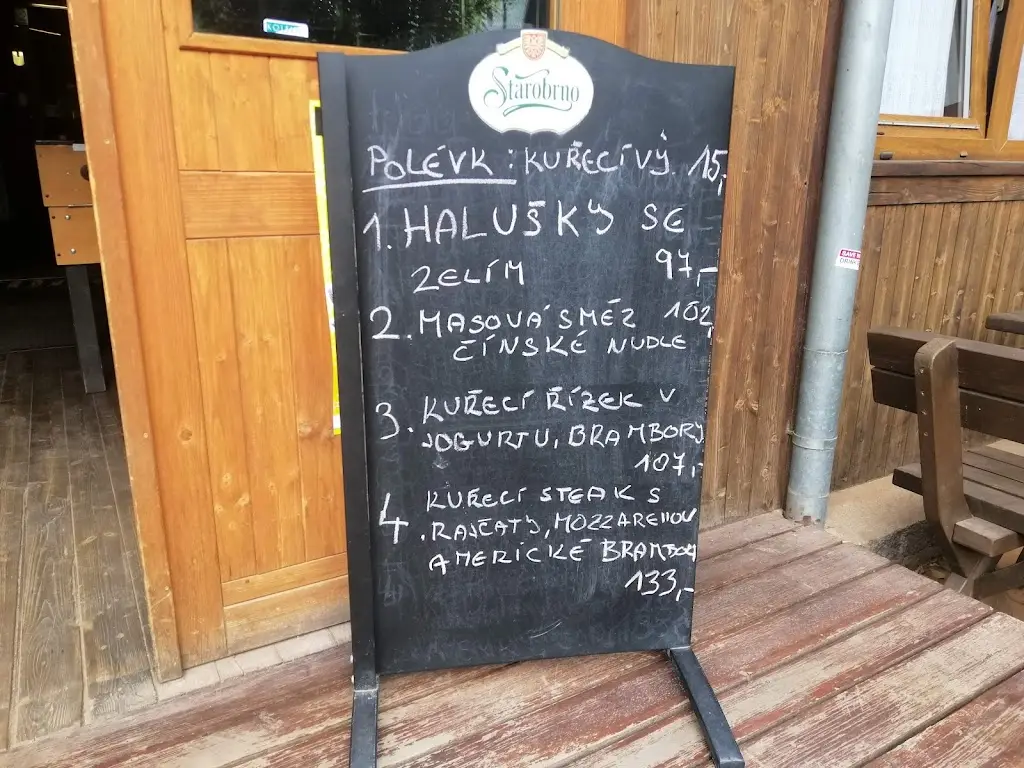 Starobrno
POLÉVK : KUŘECÍ VÝ. 15,
1. HALUŠKY SE
ZELÍM 97,-
2. MASOVÁ SMĚZ 102,
ČÍNSKÉ NUDLE
3. KUŘECÍ ŘÍZEK V
JOGURTU, BRAMBORY
107,-
4 KUŘECÍ STEAK S
. RAJČATY, MOZZARELLOU
AMERICKÉ BRAMBORY
133,-